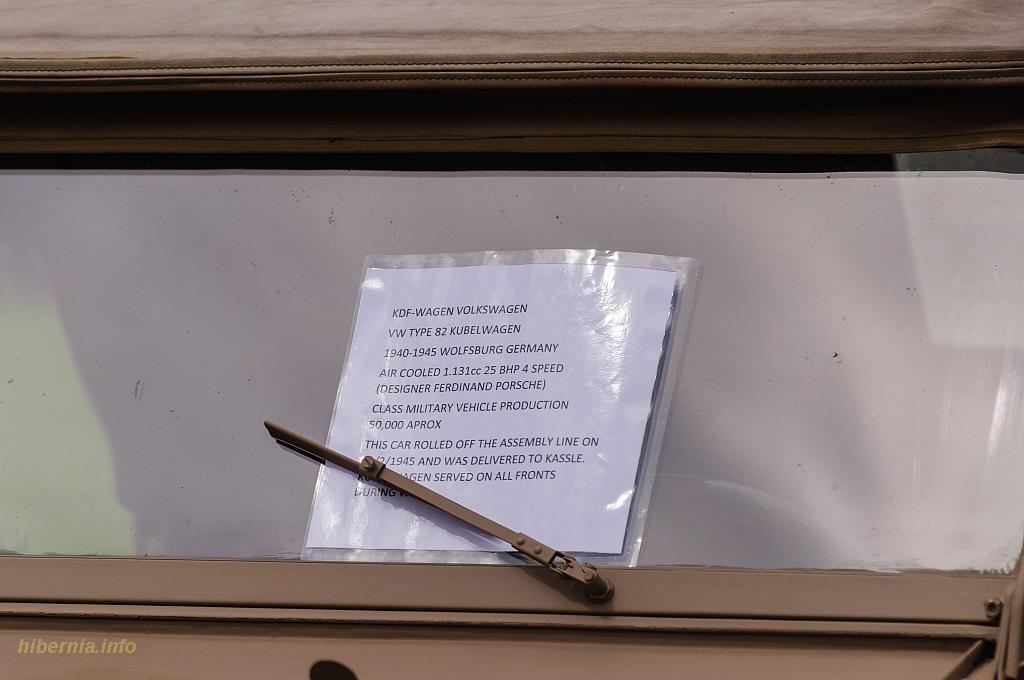 KDF-WAGEN VOLKSWAGEN
VW TYPE 82 KUBELWAGEN
1940-1945 WOLFSBURG GERMANY
AIR COOLED 1.131cc 25 BHP 4 SPEED
(DESIGNER FERDINAND PORSCHE)
CLASS MILITARY VEHICLE PRODUCTION
50,000 APROX
THIS CAR ROLLED OFF THE ASSEMBLY LINE ON
/2/1945 AND WAS DELIVERED TO KASSLE.
SERVED ON ALL FRONTS
DURING
hibernia.info